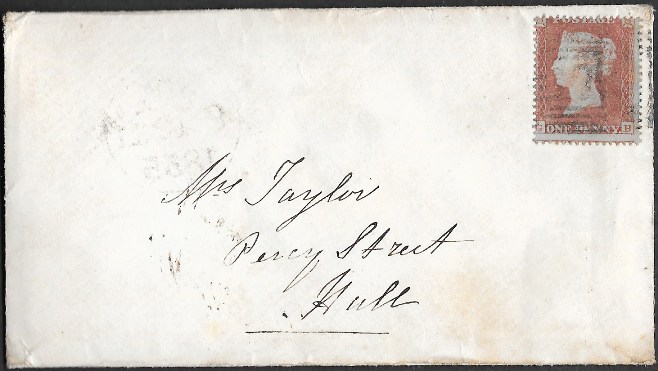 ONE PENNY
Mrs Taylor
Percy Street
Hull